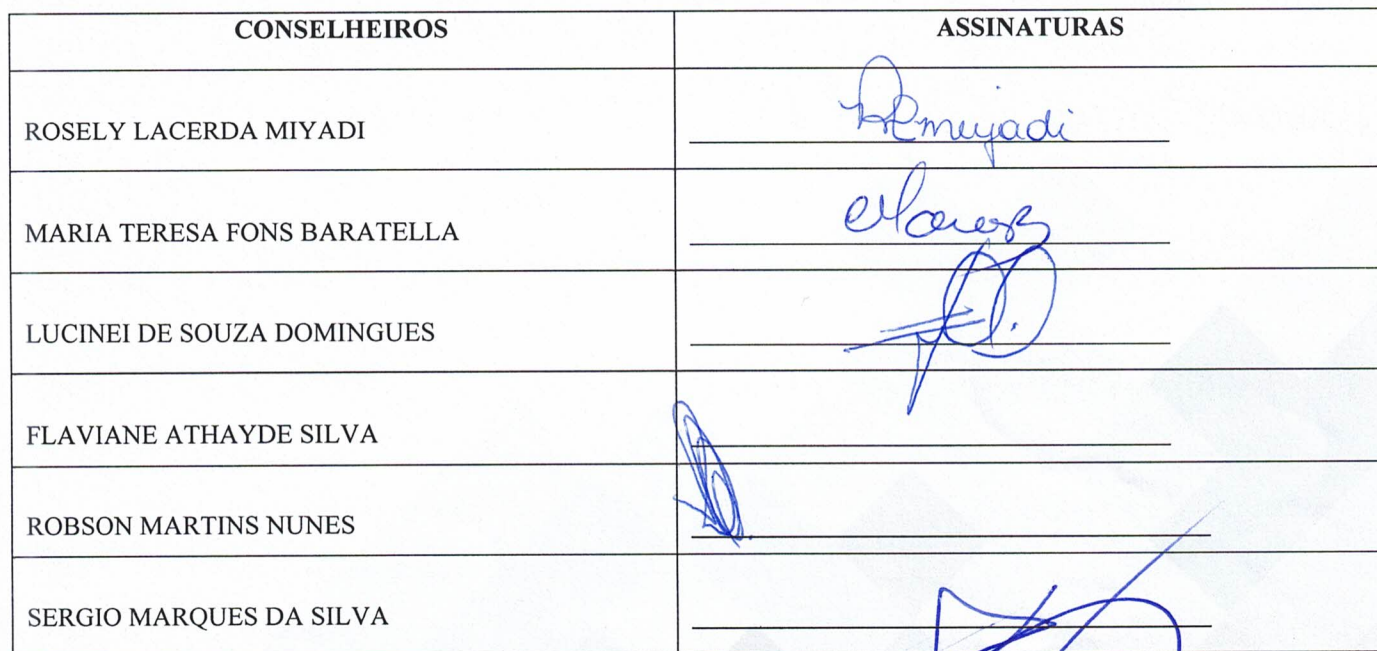 CONSELHEIROS ASSINATURAS
ROSELY LACERDA MIYADI RLmiyadi
MARIA TERESA FONS BARATELLA
LUCINEI DE SOUZA DOMINGUES
FLAVIANE ATHAYDE SILVA
ROBSON MARTINS NUNES
SERGIO MARQUES DA SILVA